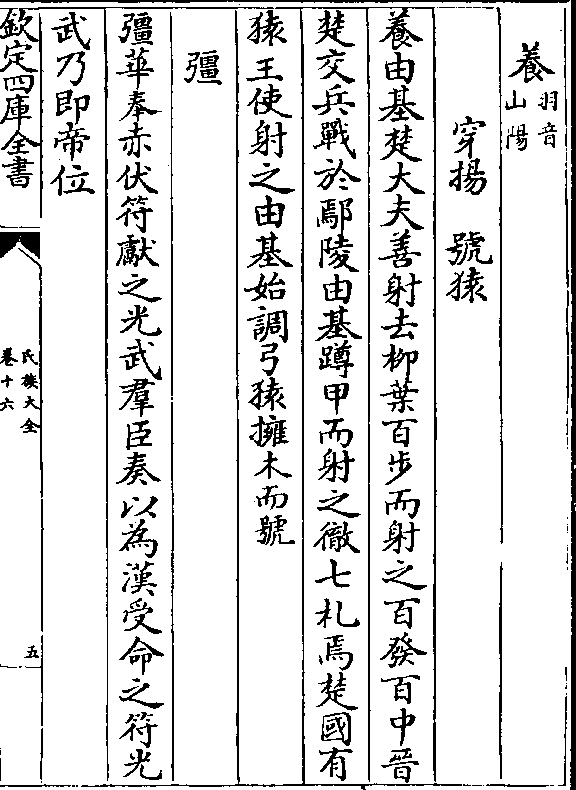 養 羽音 山陽
穿揚 號猿
養由基楚大夫善射去柳葉百步而射之百發百中晉
楚交兵戰於鄢陵由基蹲甲而射之徹七札焉楚國有
猿王使射之由基始調弓猿擁木而號
彊
彊華奉赤伏符獻之光武羣臣奏以為漢受命之符光
武乃即帝位
欽定四庫全書
氏族大全
卷十六
五